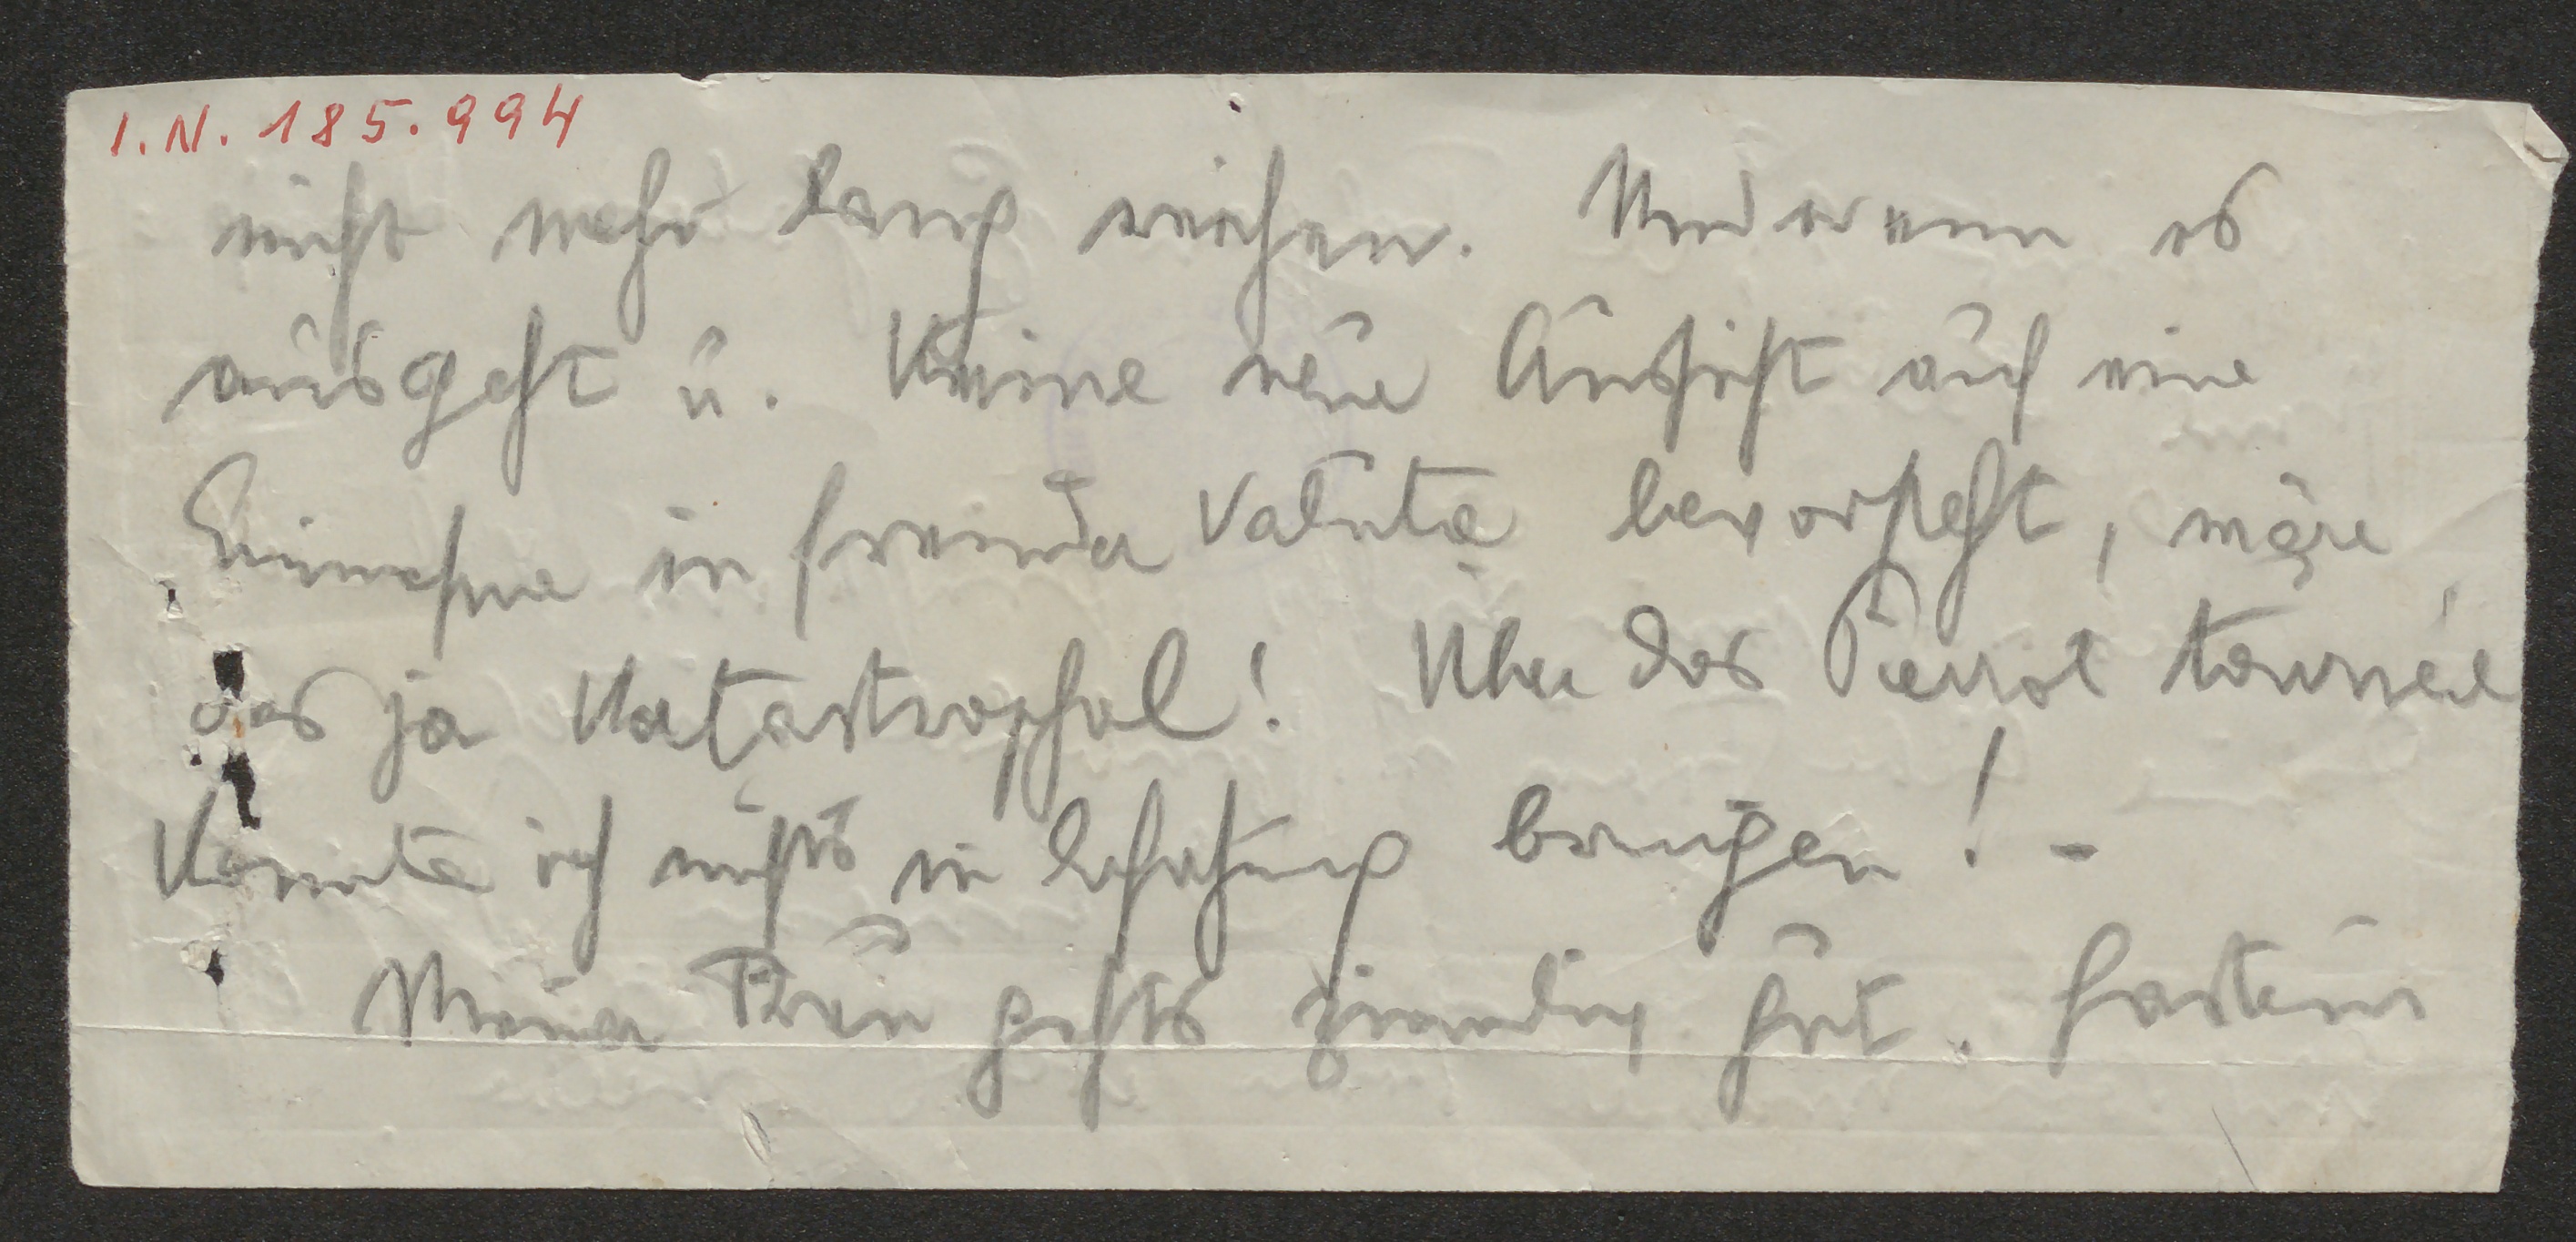 I.N. 185.994
nicht mehr lang reichen. Und wenn es
ausgeht u. keine neue Aussicht auf eine
Einnahme in fremder Valuta bevorsteht, wäre
das ja katastrophal! Über das Pierrot tournée
konnte ich nichts in Erfahrung bringen! -
Meiner Frau gehts ziemlich gut.